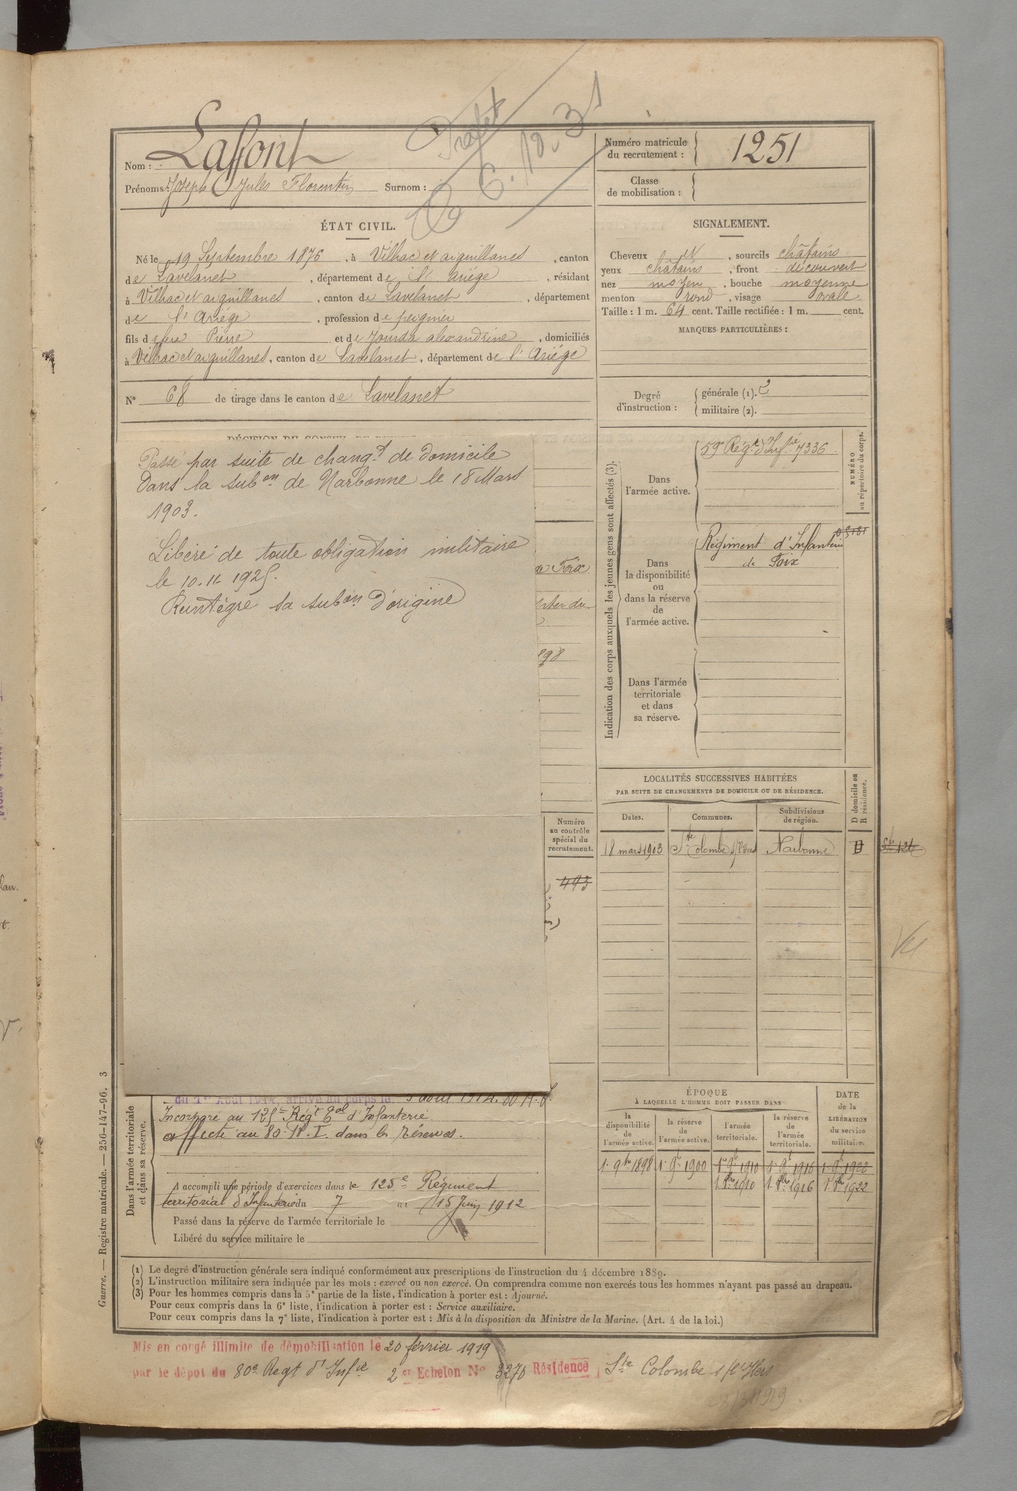 Lafont
Nom :
Prénoms : Joseph Jules Florentin Surnom :
6. 10. 31
Numéro matricule
du recrutement : 1251
Classe
de mobilisation :
ÉTAT CIVIL.
Né le 19 Septembre 1876, à Vilhac et aiguillanes, canton
de Lavelanet, département de l'Ariège, résidant
à Vilhac et aiguillanes, canton de Lavelanet, département
de l'Ariège, profession de peignier
fils de feu Pierre et de Jourda alexandrine, domiciliés
à Vilhac et aiguillanes, canton de Lavelanet, département de l'Ariège
N° 68 de tirage dans le canton de Lavelanet
SIGNALEMENT.
Cheveux et, sourcils châtains
yeux châtains, front découvert
nez moyen, bouche moyenne
menton rond, visage ovale
Taille : 1 m. 64 cent. Taille rectifiée : 1 m. cent.
MARQUES PARTICULIÈRES :
Degré
d'instruction :
générale (1). 2
militaire (2).
Passé par suite de changt de domicile
Dans la subon de Narbonne le 18 Mars
1903.
Libéré de toute obligation militaire
le 10.11.1925.
Réintègre sa subon d'origine
Foix
898
Indication des corps auxquels les jeunes gens sont affectés (3).
Dans
l'armée active.
59e Régt d'Infie 7336
NUMÉRO
au répertoire du corps.
Dans
la disponibilité
ou
dans la réserve
de
l'armée active.
Régiment d'Infanterie
de Foix
Dans l'armée
territoriale
et dans
sa réserve.
LOCALITÉS SUCCESSIVES HABITÉES
PAR SUITE DE CHANGEMENTS DE DOMICILE OU DE RÉSIDENCE.
D domicile ou
R résidence.
Dates. Communes. Subdivisions
de région.
18 mars 1903 Ste Colombe s/l'Hers Narbonne D
Numéro
au contrôle
spécial du
recrutement.
493
Dans l'armée territoriale
et dans sa réserve.
du 1er Août 1914, arrivé au corps le 3 août 1914.
Incorporé au 125e Régt Tal d'Infanterie
affecté au 80e R.I. dans les réserves.
A accompli une période d'exercices dans le 125e Régiment
territorial d'Infanterie du 7 au 15 Juin 1912
Passé dans la réserve de l'armée territoriale le
Libéré du service militaire le
ÉPOQUE
À LAQUELLE L'HOMME DOIT PASSER DANS
la
disponibilité
de
l'armée active.
la réserve
de
l'armée active.
l'armée
territoriale.
la réserve
de
l'armée
territoriale.
DATE
de la
LIBÉRATION
du service
militaire.
1er 9bre 1898 1er 9e 1900 1er 9e 1910 1er 9e 1916 1er 9e 1922
1er 8bre 1910 1er 8bre 1916 1er 8bre 1922
(1) Le degré d'instruction générale sera indiqué conformément aux prescriptions de l'instruction du 4 décembre 1889.
(2) L'instruction militaire sera indiquée par les mots : exercé ou non exercé. On comprendra comme non exercés tous les hommes n'ayant pas passé au drapeau.
(3) Pour les hommes compris dans la 5e partie de la liste, l'indication à porter est : Ajourné.
Pour ceux compris dans la 6e liste, l'indication à porter est : Service auxiliaire.
Pour ceux compris dans la 7e liste, l'indication à porter est : Mis à la disposition du Ministre de la Marine. (Art. 4 de la loi.)
Guerre. — Registre matricule. — 256-147-96. 3
Mis en congé illimité de démobilisation le 20 février 1919
par le dépôt du 80e Regt d'Infie 2e Echelon No 3276 Résidence Ste Colombe s/l'Hers